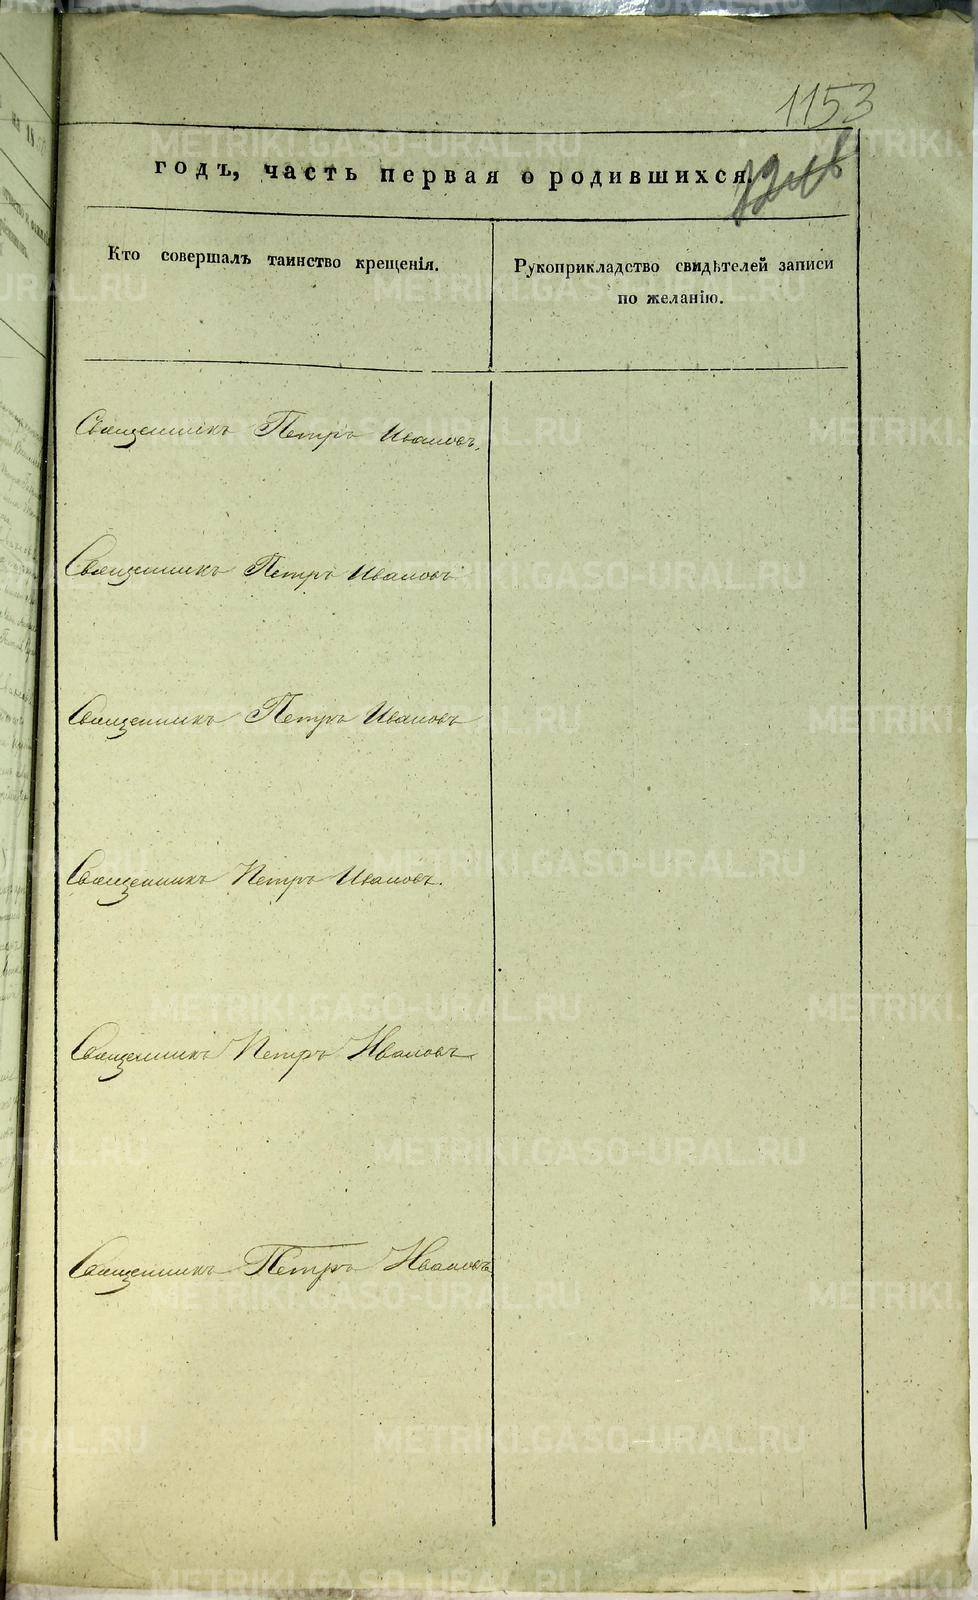 1153
годъ, часть первая о родившихся
Кто совершалъ таинство крещенія.
Рукоприкладство свидѣтелей записи
по желанію.
Священникъ Петръ Ивановъ.
Священникъ Петръ Ивановъ
Священникъ Петръ Ивановъ
Священникъ Петръ Ивановъ.
Священникъ Петръ Ивановъ
Священникъ Петръ Ивановъ
METRIKI.GASO-URAL.RU